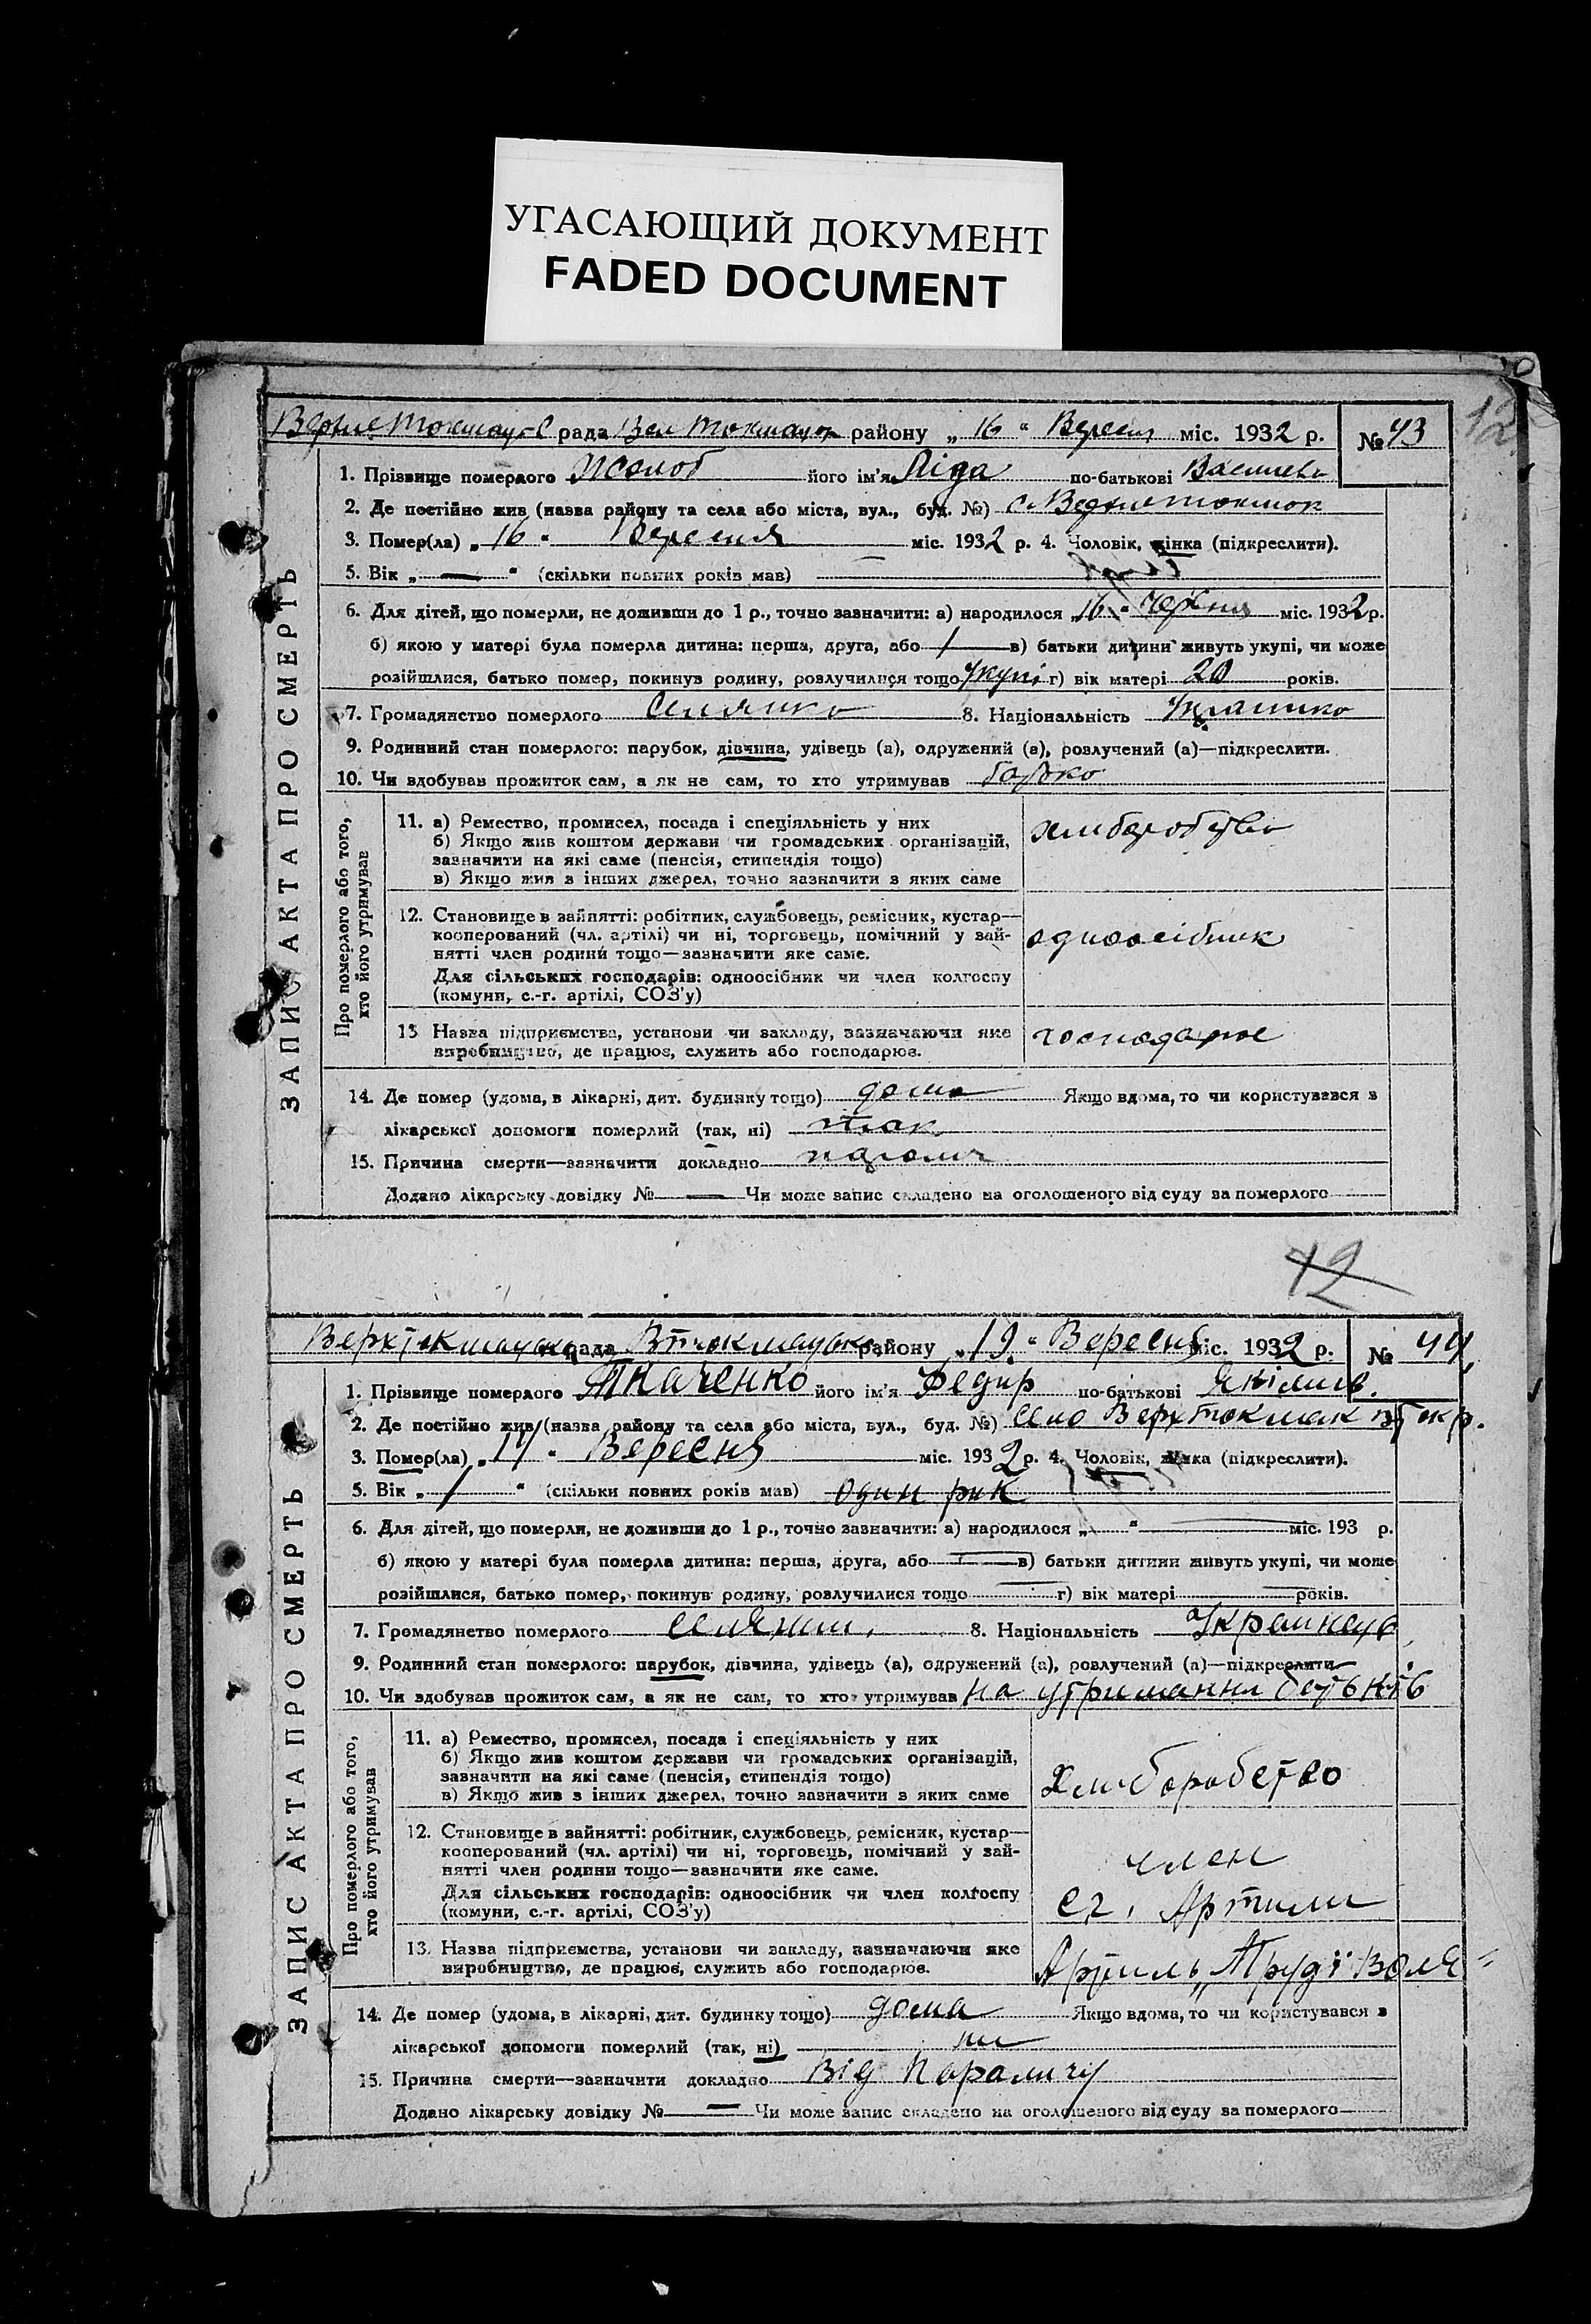 УГАСАЮЩИЙ ДОКУМЕНТ
FADED DOCUMENT
12
рада Вел Токмацьк району „ 16 “ Вересня міс. 1932 р. № 43
ЗАПИС АКТА ПРО СМЕРТЬ
1. Прізвище померлого Жолоб його ім'я Ліда по-батькові Василева
2. Де постійно жив (назва району та села або міста, вул., буд. №) с. Верхнєтокмак
3. Помер(ла) „ 16 “ Вересня міс. 1932 р. 4. Чоловік, жінка (підкреслити).
5. Вік „ — “ (скільки повних років мав) —
6. Для дітей, що померли, не доживши до 1 р., точно зазначити: а) народилося „ 16 “ Червня міс. 1932 р.
б) якою у матері була померла дитина: перша, друга, або 1 в) батьки дитини живуть укупі, чи може
розійшлися, батько помер, покинув родину, розлучилися тощо укупі г) вік матері 20 років.
7. Громадянство померлого Селянка 8. Національність Українка
9. Родинний стан померлого: парубок, дівчина, удівець (а), одружений (а), розлучений (а)—підкреслити.
10. Чи здобував прожиток сам, а як не сам, то хто утримував батько
Про померлого або того, хто його утримував
11. а) Ремество, промисел, посада і спеціяльність у них
б) Якщо жив коштом держави чи громадських організацій,
зазначити на які саме (пенсія, стипендія тощо)
в) Якщо жив з інших джерел, точно зазначити з яких саме
хлиборобство
12. Становище в зайнятті: робітник, службовець, ремісник, кустар—
кооперований (чл. артілі) чи ні, торговець, помічний у зай-
нятті член родини тощо—зазначити яке саме.
Для сільських господарів: одноосібник чи член колгоспу
(комуни, с.-г. артілі, СОЗ'у)
одноосібник
13 Назва підприємства, установи чи закладу, зазначаючи яке
виробництво, де працює, служить або господарює.
господарює
14. Де помер (удома, в лікарні, дит. будинку тощо) дома Якщо вдома, то чи користувався з
лікарської допомоги померлий (так, ні) так
15. Причина смерти—зазначити докладно параліч
Додано лікарську довідку № — Чи може запис складено на оголошеного від суду за померлого
12
Верхтокмацька рада Втокмацько району „ 19 “ Вересня міс. 1932 р. № 44
ЗАПИС АКТА ПРО СМЕРТЬ
1. Прізвище померлого Ткаченко його ім'я Федир по-батькові Якімив.
2. Де постійно жив (назва району та села або міста, вул., буд. №) село Верхтокмак
3. Помер(ла) „ “ Вересня міс. 1932 р. 4. Чоловік, жінка (підкреслити).
5. Вік „ 1 “ (скільки повних років мав) один рик
6. Для дітей, що померли, не доживши до 1 р., точно зазначити: а) народилося „ “ міс. 193 р.
б) якою у матері була померла дитина: перша, друга, або в) батьки дитини живуть укупі, чи може
розійшлися, батько помер, покинув родину, розлучилися тощо г) вік матері років.
7. Громадянство померлого селянин 8. Національність Украинець
9. Родинний стан померлого: парубок, дівчина, удівець (а), одружений (а), розлучений (а)—підкреслити.
10. Чи здобував прожиток сам, а як не сам, то хто утримував на утриманни батьків
Про померлого або того, хто його утримував
11. а) Ремество, промисел, посада і спеціяльність у них
б) Якщо жив коштом держави чи громадських організацій,
зазначити на які саме (пенсія, стипендія тощо)
в) Якщо жив з інших джерел, точно зазначити з яких саме
Хлиборобство
12. Становище в зайнятті: робітник, службовець, ремісник, кустар—
кооперований (чл. артілі) чи ні, торговець, помічний у зай-
нятті член родини тощо—зазначити яке саме.
Для сільських господарів: одноосібник чи член колгоспу
(комуни, с.-г. артілі, СОЗ'у)
член
сг. Артили
13. Назва підприємства, установи чи закладу, зазначаючи яке
виробництво, де працює, служить або господарює.
Артиль „Труд і Воля“
14. Де помер (удома, в лікарні, дит. будинку тощо) дома Якщо вдома, то чи користувався з
лікарської допомоги померлий (так, ні) ни
15. Причина смерти—зазначити докладно Від Параличу
Додано лікарську довідку № — Чи може запис складено на оголошеного від суду за померлого